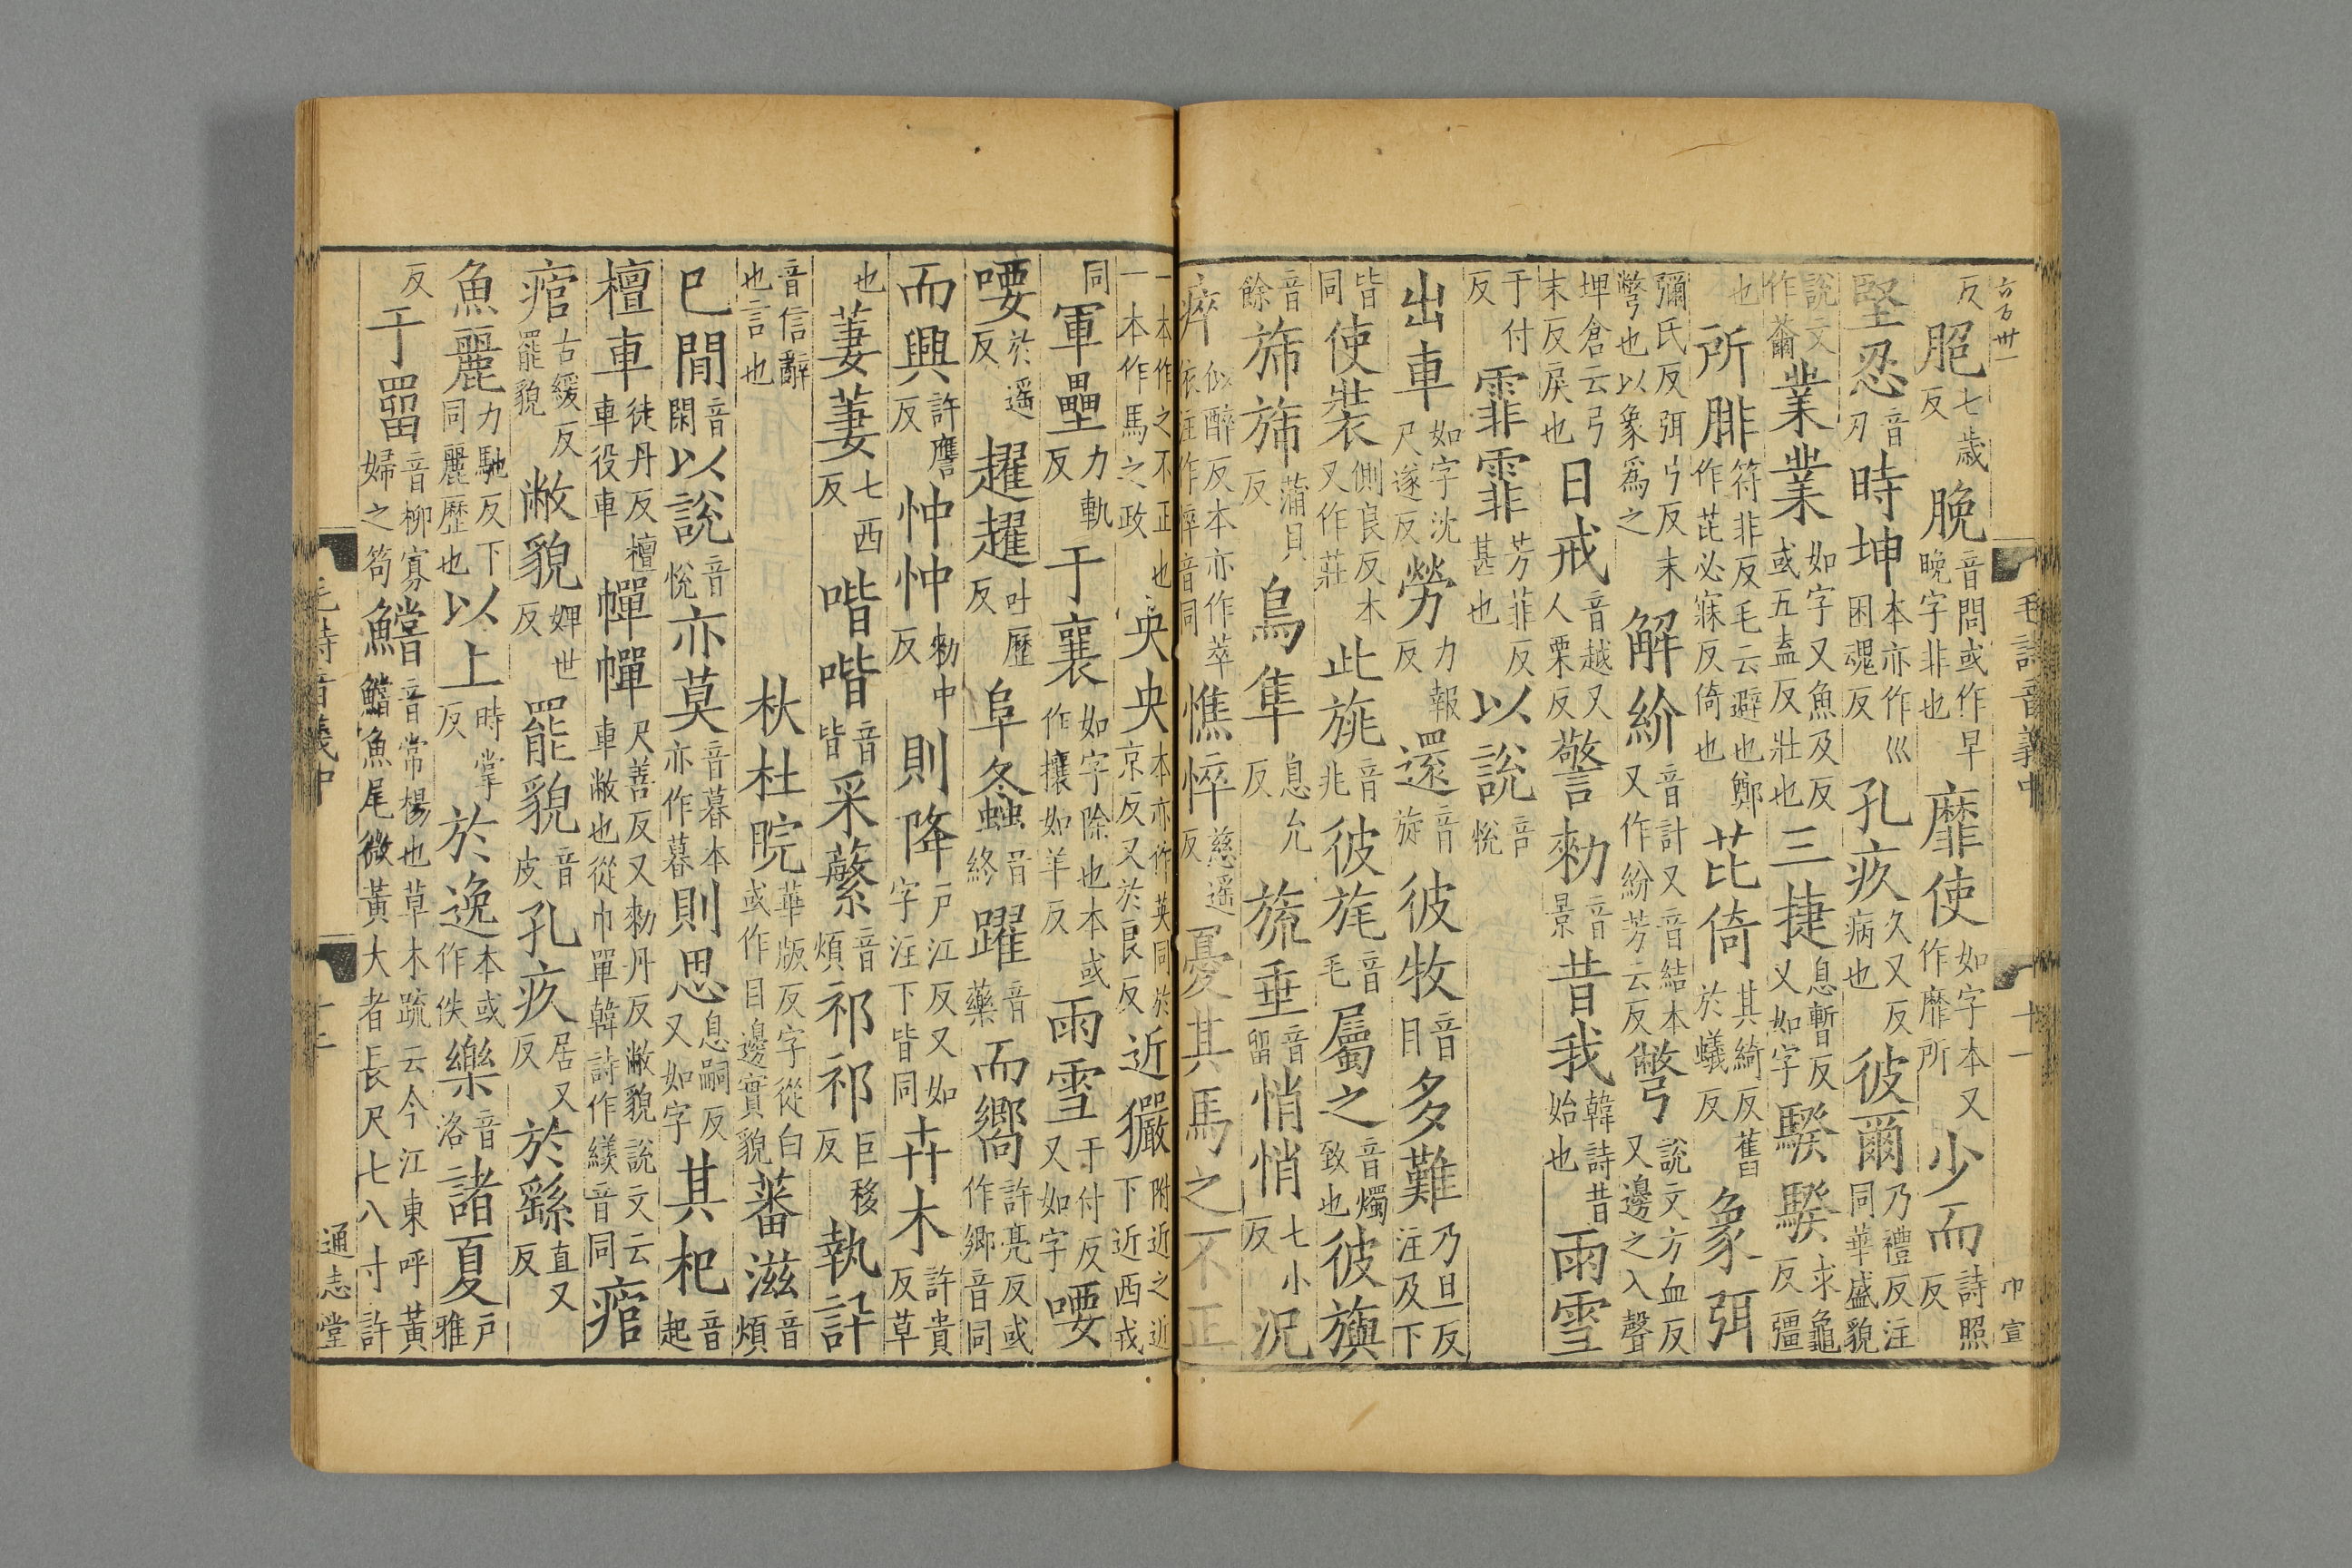 毛詩音義中 十一
反脃七歲反脕音問或作早晚字非也靡使如字本又作靡所少而詩照反
堅忍音刃時坤本亦作巛困魂反孔疚久又反病也彼爾乃禮反注同華盛貌
說文作薾業業如字又魚及反或五盍反壯也三捷息暫反又如字騤騤求龜反彊
也所腓符非反毛云避也鄭作芘必寐反倚也芘倚其綺反舊於蟻反象弭
彌氏反弭弓反末彆也以象為之解紒音計又音結本又作紛芳云反彆說文方血反又邊之入聲
埤倉云弓末反戾也曰戒音越又人栗反警勑音景昔我韓詩昔始也雨雪
于付反霏霏芳菲反甚也以說音悅
出車如字沈尺遂反勞力報反還音旋彼牧音目多難乃旦反注及下
皆同使裝側良反本又作莊此旐音兆彼旄音毛屬之音燭致也彼旟
音餘旆旆蒲貝反鳥隼息允反旒垂音留悄悄七小反況
瘁似醉反本亦作萃依注作悴音同憔悴慈遥反憂其馬之不正
一本作之不正也一本作馬之政央央本亦作英同於京反又於良反近玁附近之近下近西戎
同軍壘力軌反于襄如字除也本或作攘如羊反雨雪于付反又如字喓
喓於遥反趯趯吐歷反阜螽音終躍音藥而嚮許亮反或作鄉音同
而興許譍反忡忡勑中反則降戶江反又如字注下皆同卉木許貴反草
也萋萋七西反喈喈音皆采蘩音煩祁祁巨移反執訊
音信辭也言也杕杜睆華版反字從白或作目邊實貌蕃滋音煩
已閒音閑以說音悅亦莫音暮本亦作暮則思息嗣反又如字其杞音起
檀車徒丹反檀車役車幝幝尺善反又勑丹反敝貌說文云車敝也從巾單韓詩作繟音同痯
痯古緩反罷貌敝貌婢世反罷貌音皮孔疚居又反於繇直又反
魚麗力馳反下同麗歷也以上時掌反於逸本或作佚樂音洛諸夏戶雅
反于罶音柳寡婦之笱鱨音常楊也草木疏云今江東呼黃鱨魚尾微黃大者長尺七八寸許
毛詩音義中 十二 通志堂